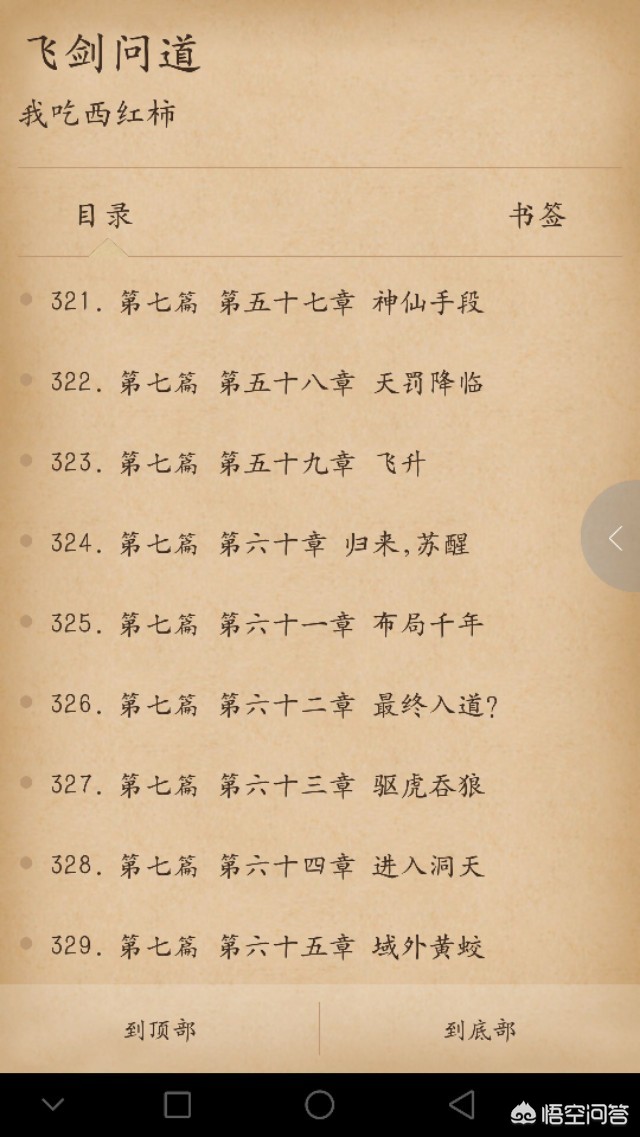 飞剑问道
我吃西红柿
目录
书签
321. 第七篇 第五十七章 神仙手段
322. 第七篇 第五十八章 天罚降临
323. 第七篇 第五十九章 飞升
324. 第七篇 第六十章 归来,苏醒
325. 第七篇 第六十一章 布局千年
326. 第七篇 第六十二章 最终入道?
327. 第七篇 第六十三章 驱虎吞狼
328. 第七篇 第六十四章 进入洞天
329. 第七篇 第六十五章 域外黄蛟
到顶部
到底部
悟空问答